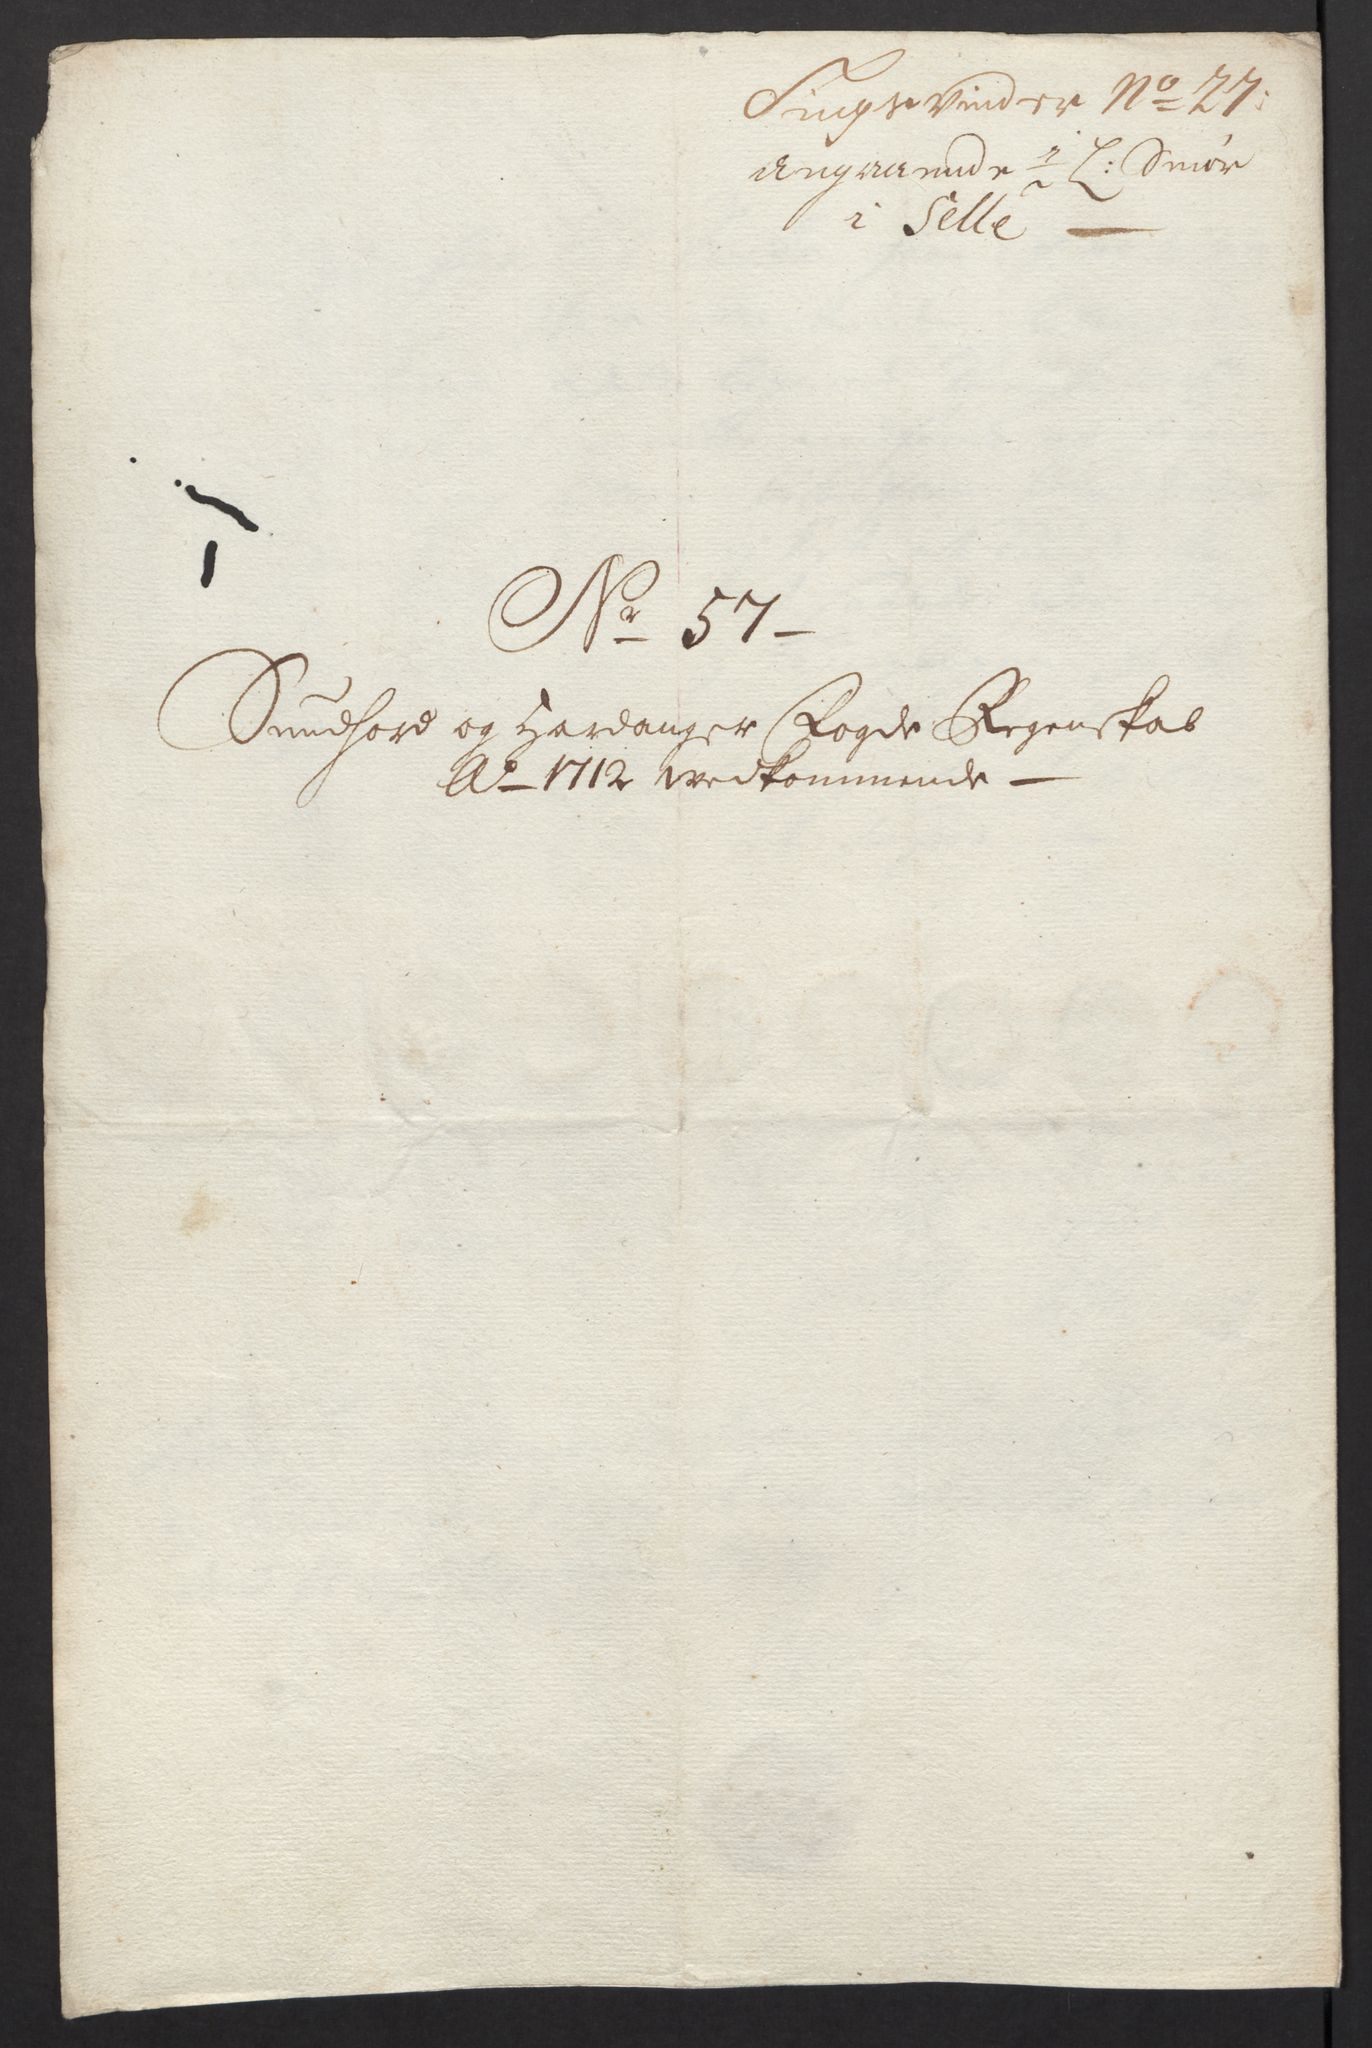 Tingsvinder No 27:
angaaende 1 L: Smør
i Selle
Nr 57
Sundhord og Hardanger Fogde Regenskab
Ao 1712 vedkommende